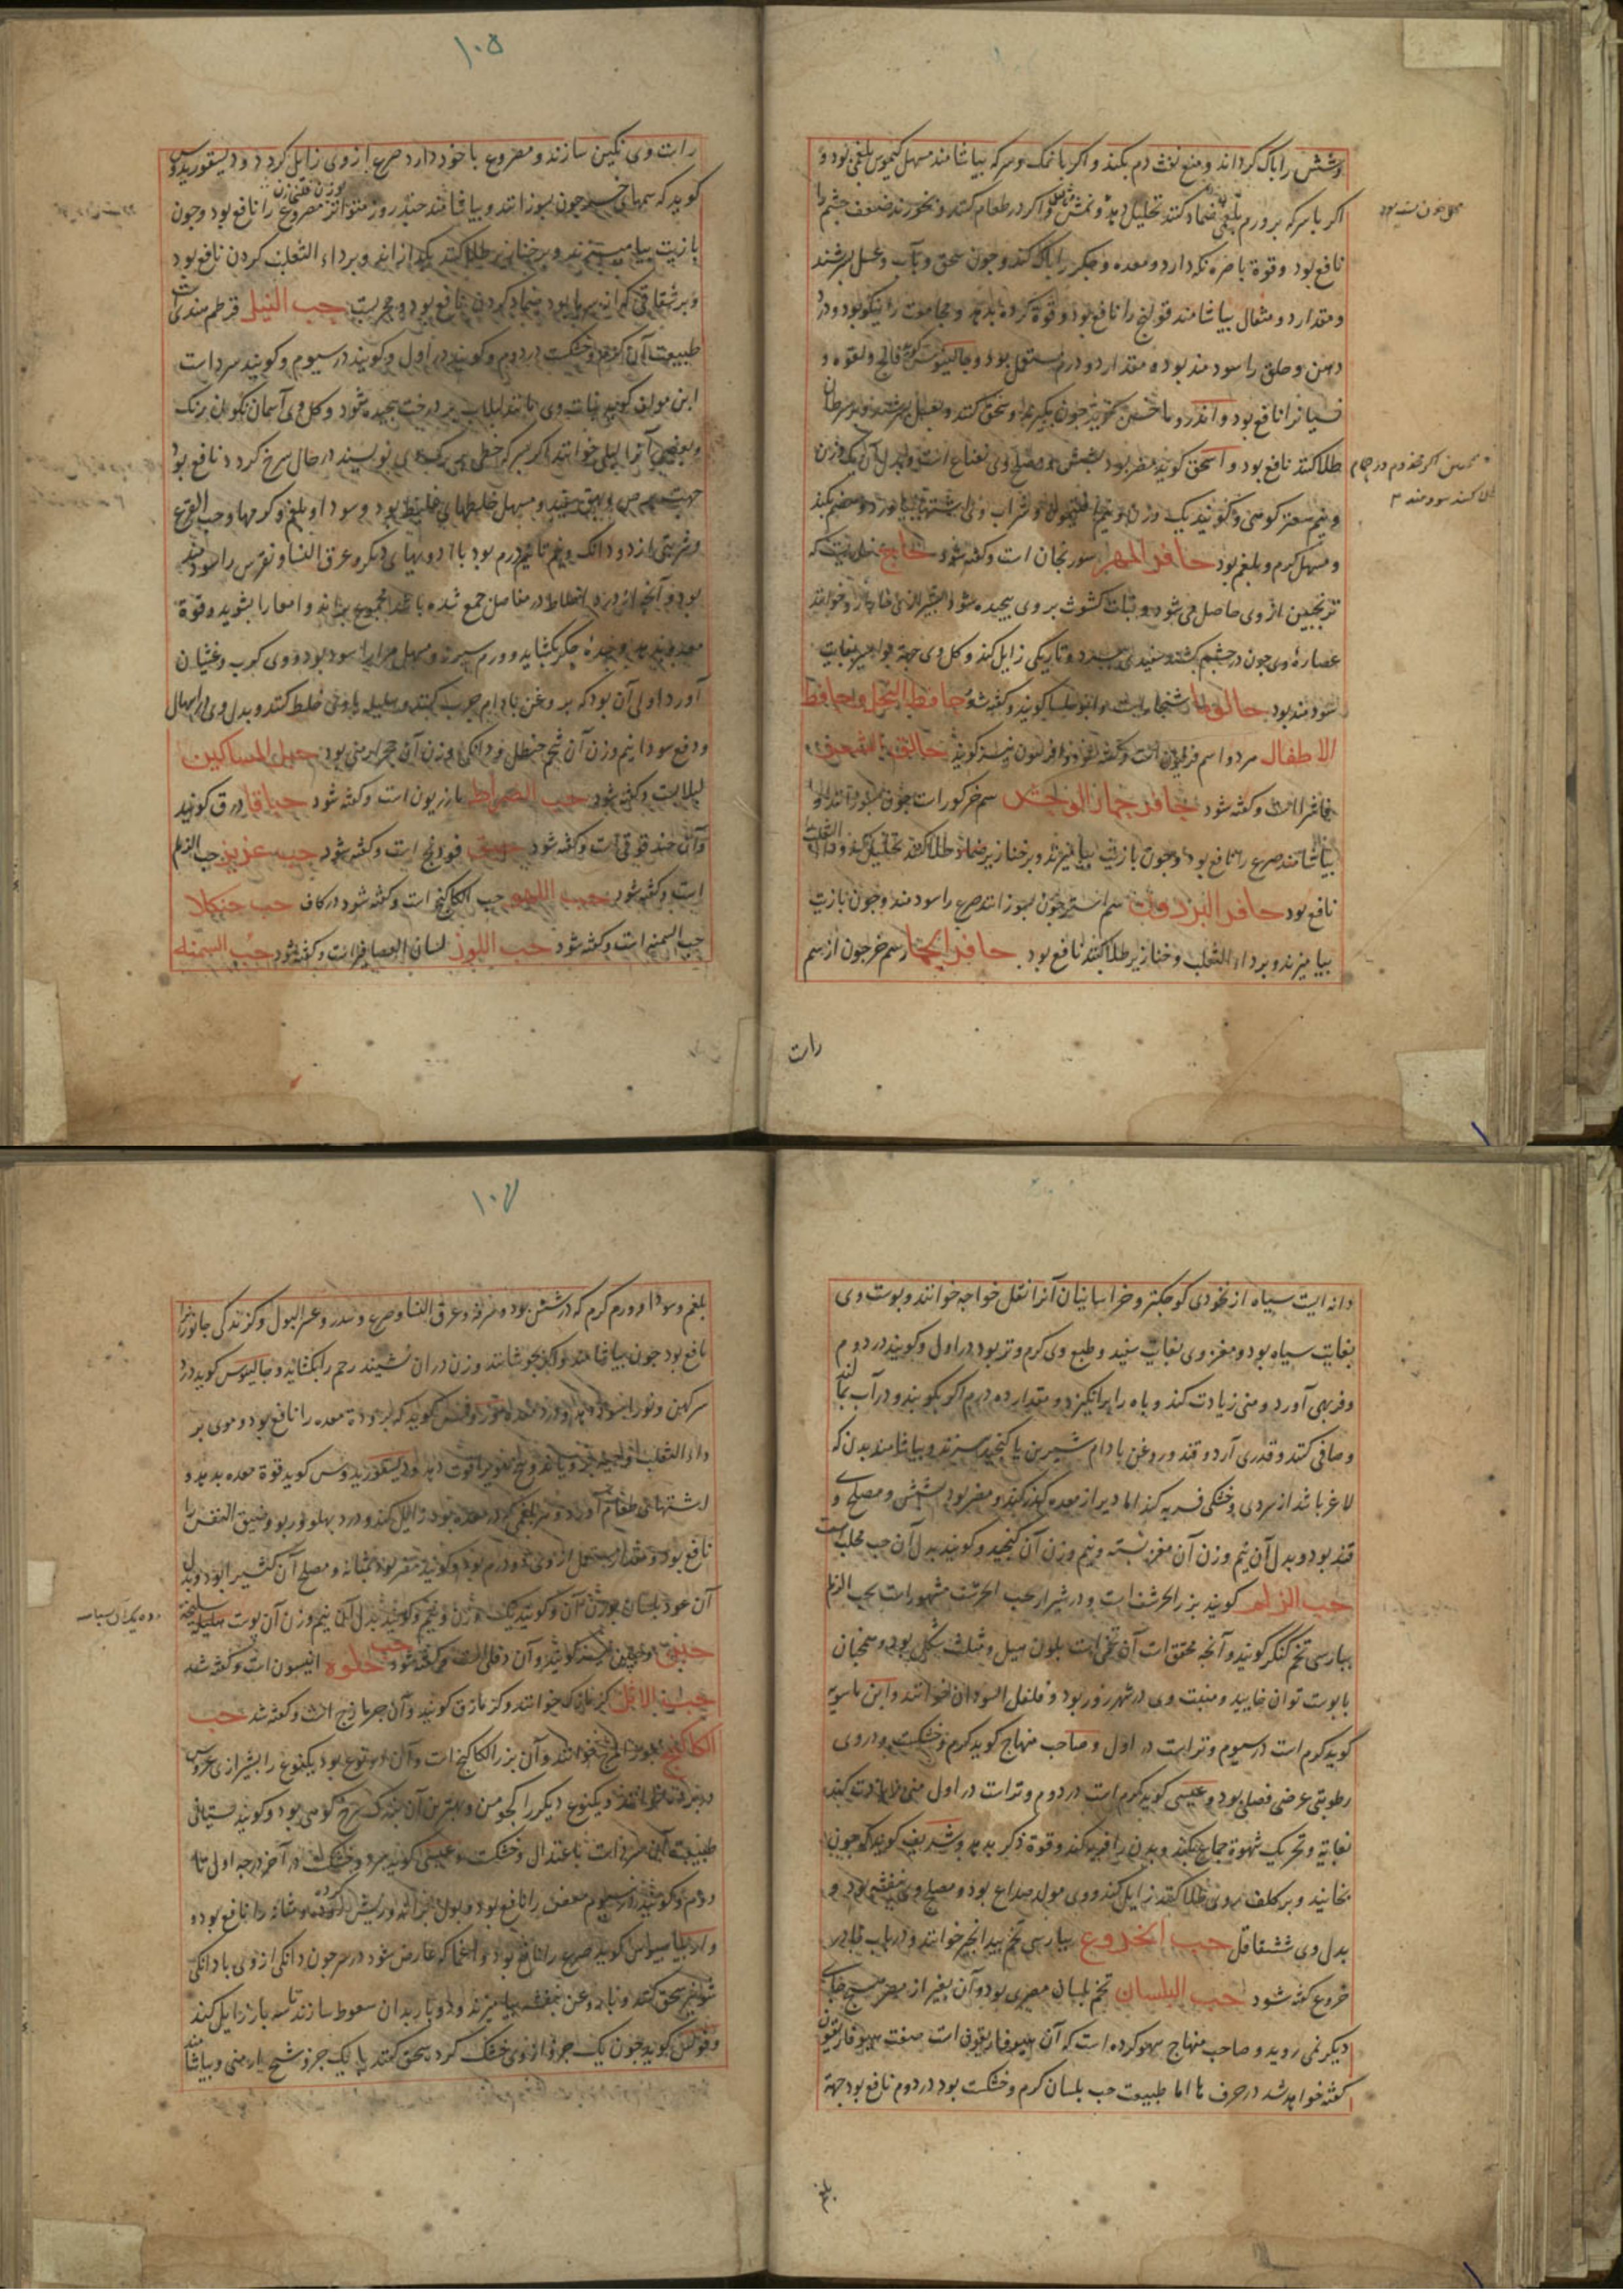 وشش را پاک گرداند و منع نفث دم بکند و اگر با نمک و سرکه بیاشامند مسهل کیموس بلغمی بود و
اگر با سرکه بر ورم بلغمی ضماد کنند تحلیل دهد و اگر در طعام کنند و بخورند ضعف چشم را
نافع بود و قوة باصره نگه دارد و معده و جگر را پاک کند و چون سحق و بآب و عسل بسرشند
و مقدار دو مثقال بیاشامند قولنج را نافع بود و قوة گرده بدهد و مجامعت را نیکو بود و درد
دهن و حلق را سودمند بود و مقدار دو درم مستعمل بود و جالینوس گوید فالج و لقوه و
طلا کنند نافع بود و اسحق گوید مضر بود بشش و مصلح وی نعناع است و بدل آن یک وزن
و مسهل کرم و بلغم بود حافر المهر سورنجان است و گفته شود حاج
ترنجبین از وی حاصل می شود و نبات کشوث بر وی پیچیده شود
عصاره وی چون در چشم کشند سفیدی ببرد و تاریکی زایل کند و گل وی جهة بواسیر بغایت
سودمند بود حالوما شنجار است و ابوحلسا گویند و گفته شود حافظ النحل و حافظ
الاطفال مردو اسم
خانق الشعر
گفته شود حافر حمار الوحش سم خر گور است چون بسوزانند و
بیاشامند صرع را نافع بود و چون با زیت بیامیزند و بر خنازیر ضماد و طلا کنند تحلیل کند و داء الثعلب
نافع بود حافر البرذون سم استر چون بسوزانند صرع را سودمند و چون با زیت
بیامیزند و بر داء الثعلب و خنازیر طلا کنند نافع بود حافر الحمار سم خر چون از سم
راست
۱۰۵
راست وی نگین سازند و مصروع با خود دارد صرع از وی زایل گردد و دیسقوریدوس
گوید که سمهای خر چون بسوزانند و بیاشامند چند روز متواتر مصروع را نافع بود و چون
با زیت بیامیزند و بر خنازیر طلا کنند بگدازاند و بر داء الثعلب کردن نافع بود
و بر شقاقی که از سرما بود ضماد کردن نافع بود و مجربست حب النیل قرطم هندی است
طبیعت آن گرم و خشکست در دوم و گویند در اول و گویند در سیوم و گویند سرد است
این مولف گوید نبات وی مانند لبلاب بر درخت پیچیده شود و گل وی آسمان گون رنگ
و بعضی آنرا نیلی خوانند اگر بسرکه خطی بر گل وی نویسند در حال سرخ گردد نافع بود
جهت برص و بهق سفید و مسهل خلطهای غلیظ بود و سودا و بلغم و کرمها و حب القرع
و شربتی از دو دانگ و نیم تا نیم درم بود با ادویهای دیگر و عرق النسا و نقرس را سودمند
بود و آنچه از درد اخلاط در مفاصل جمع شده باشد مجموع براند و امعا را بشوید و قوة
معده بدهد و سده جگر بگشاید و ورم سپرز و
آورد اولی آن بود که بروغن بادام چرب کنند و هلیله با وی خلط کنند و بدل وی در اسهال
و دفع سودا نیم وزن آن شحم حنظل و دانگی وزن آن حجر ارمنی بود حبل المساکین
لبلابست و گفته شود حب الضراط مازریون است و گفته شود حباقا ذرق گویند
و آن حندقوقی است و گفته شود حبق فودنج است و گفته شود حب عزیز حب الزلم
است و گفته شود حب اللهو حب الکاکنج است و گفته شود در کاف حب حنکلا
حب السمنه است و گفته شود حب اللوز لسان العصافیر است و گفته شود حب السمنه
دانه ایست سیاه از نخودی کوچکتر و خراسانیان آنرا نقل خواجه خوانند و پوست وی
بغایت سیاه بود و مغز وی بغایت سفید و طبع وی گرم و تر بود در اول و گویند در دوم
و فربهی آورد و منی زیادت کند و باه را برانگیزد و مقدار ده درم اگر بکوبند و در آب بمالند
و صافی کنند و قدری آرد و قند و روغن بادام شیرین یا کنجید بپزند و بیاشامند بدن که
لاغر باشد از سردی و خشکی فربه کند اما دیر از معده گذر کند و مضر بود بشش و مصلح وی
قند بود و بدل آن نیم وزن آن مغز پسته و نیم وزن آن کنجید و گویند بدل آن حب محلب است
حب الزلم گویند بزر الحرشف است و در شیراز بحب الحرشف مشهور است بحب الزلم
بپارسی تخم کنگر گویند و آنچه محقق است آن تخمی است بلون هیل و مثلث شکل بود و همچنان
با پوست توان خایید و منبت وی در شهرزور بود و فلفل السودان خوانند و ابن ماسویه
گوید گرم است در سیوم و تر است در اول و صاحب منهاج گوید گرم و خشکست و در وی
رطوبتی عرضی فضلی بود و عیسی گوید گرم است در دوم و تر است در اول منی زیادت کند
بغایة و تحریک شهوة جماع بکند و بدن را فربه کند و قوة ذکر بدهد و شریف گوید که چون
بخایند و بر کلف روی طلا کنند زایل کند و وی مولد صداع بود و مصلح وی بنفشه بود و
بدل وی ششقاقل حب الخروع بپارسی تخم بیدانجیر خوانند و در باب خا در
خروع گفته شود حب البلسان تخم بلسان مصری بود و آن بغیر از مصر هیچ جای
دیگر نمی روید و صاحب منهاج سهو کرده است که آن هیوفاریقون است صفت هیوفاریقون
گفته خواهد شد در حرف ها اما طبیعت حب بلسان گرم و خشکست بود در دوم نافع بود جهة
بلغم
۱۰۶
بلغم و سودا و ورم گرم که در شش بود و سرفه و عرق النسا و صرع و سدر و عسر البول و گزندگی جانوران
نافع بود چون بیاشامند و اگر بجوشانند و زن در آن نشیند رحم را بگشاید و جالینوس گوید درد
گوید که برودة معده را نافع بود و موی بر
داء الثعلب
و دیسقوریدوس گوید قوة معده بدهد و
اشتهای طعام آورد و هر بلغمی که در معده بود زایل کند و درد پهلو و ربو و ضیق النفس را
نافع بود و مقدار مستعمل از وی دو درم بود و گویند مضر بود بمثانه و مصلح آن کثیرا بود و بدل
آن عود بلسان بوزن آن و گویند یک وزن و نیم و گویند بدل آن نیم وزن آن پوست سلیخه
و آن دفلی است و گفته شود حب حلوه انیسون است و گفته شد
حب الاثل کزمازک خوانند و کزمازق گویند و آن جزمازج است و گفته شد حب
الکاکنج
خوانند و آن بزر الکاکنج است و آن دو نوع بود یکنوع را بشیرازی عروس
در پرده خوانند و یکنوع دیگر را کچومن و بهترین آن بود که سرخ کوهی بود و گویند بستانی
طبیعت آن سرد است باعتدال و خشکست و عیسی گوید سرد و خشکست در آخر درجه اول تا
دوم و گویند در سیوم
را نافع بود و بول براند و ریش گرده و مثانه را نافع بود و
گوید صرع را نافع بود و اغما که عارض شود در سر چون دانگی از وی با دانگی
شونیز سحق کنند و با روغن بنفشه بیامیزند و دو بار بدان سعوط سازند تا سه بار زایل کند
و فولس گوید چون یک جزو از وی خشک کرده سحق کنند با یک جزو شیح ارمنی و بیاشامند